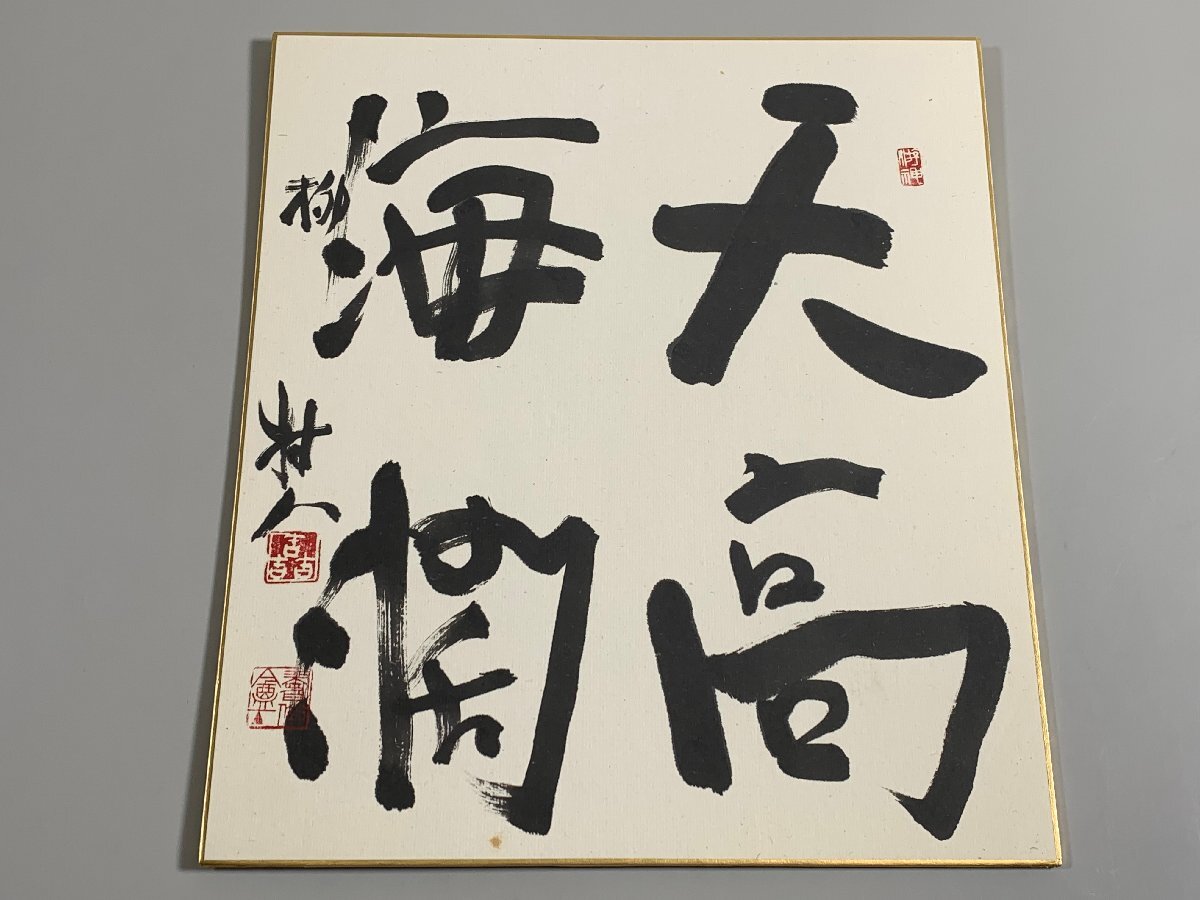 天高
海濶
柳
村人